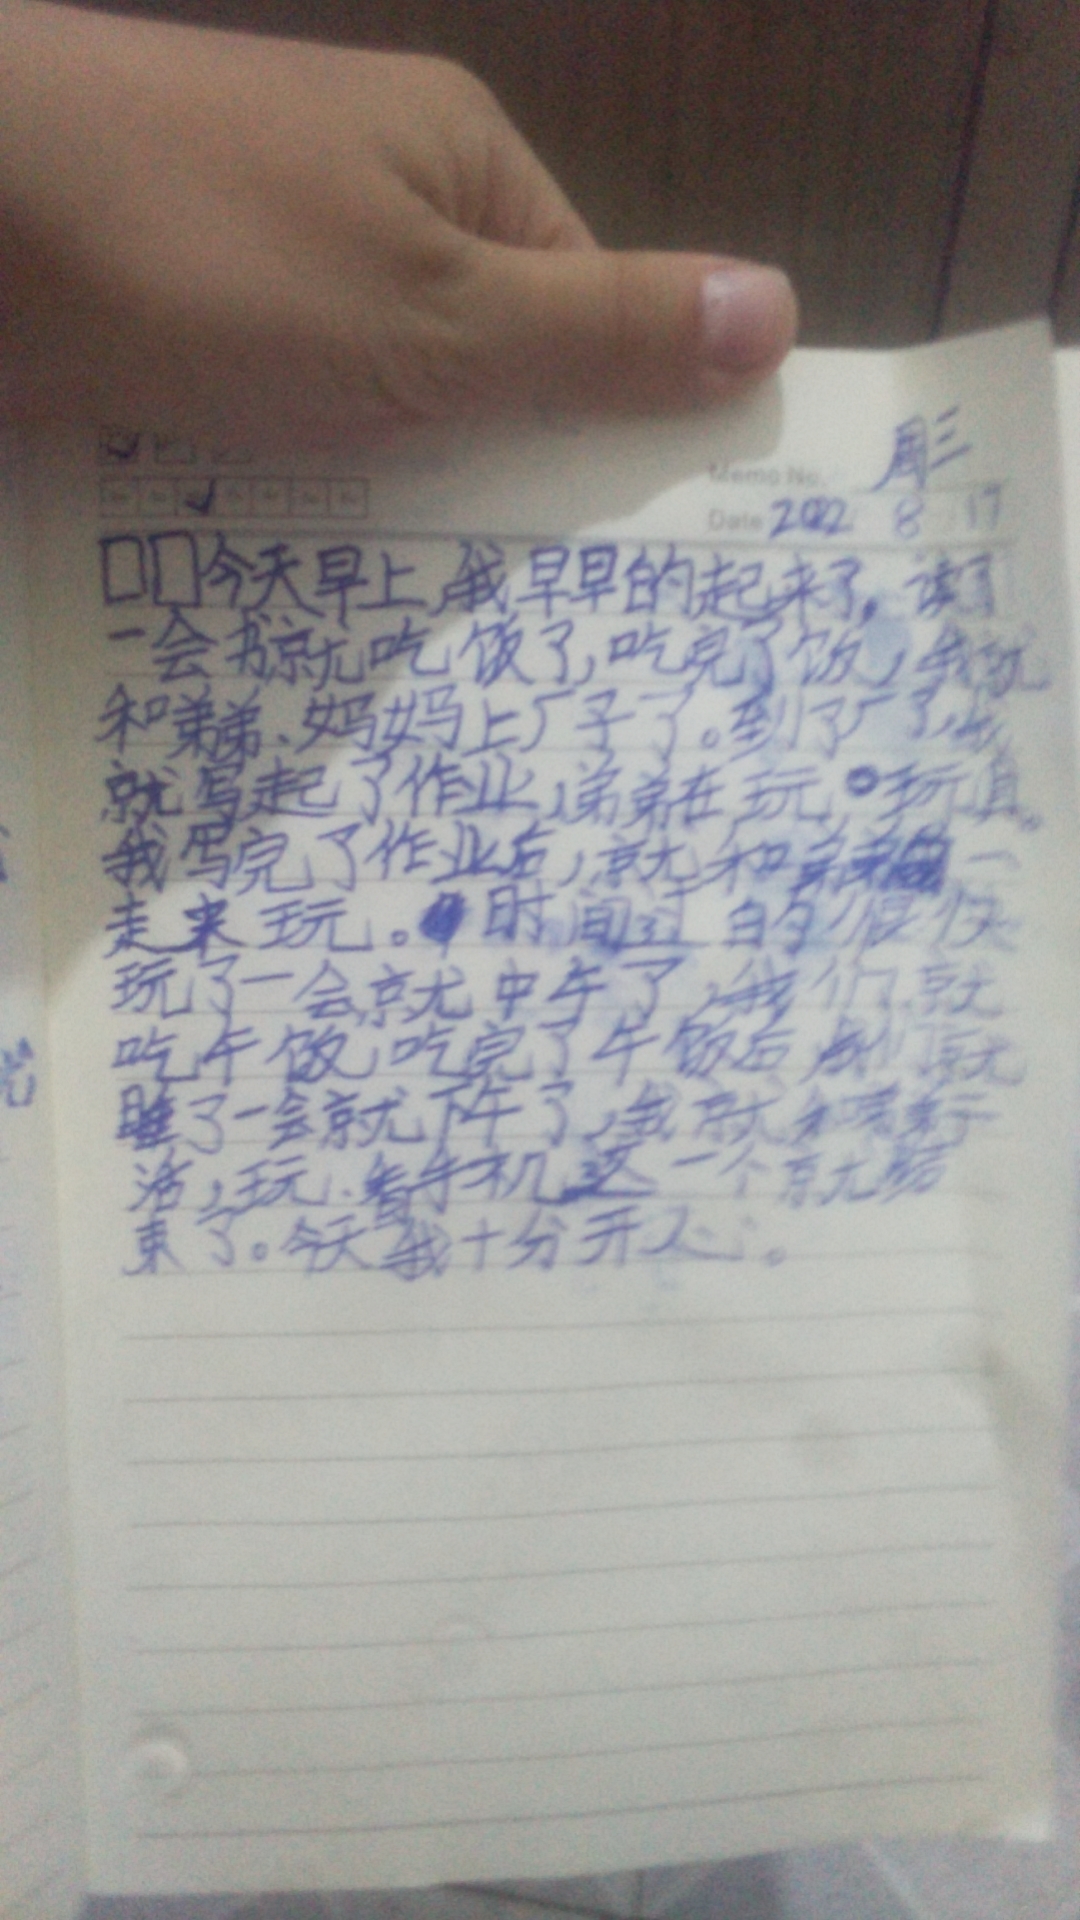 周三
Memo No.
Date 2022 8 17
今天早上,我早早的起来了。读了
一会书就吃饭了,吃完了饭,我就
和弟弟、妈妈上厂子了。到了厂了,我
就写起了作业,弟弟在玩,玩具。
我写完了作业后,就和弟弟一
走来玩。时间过的很快
玩了一会就中午了,我们就
吃午饭,吃完了午饭后我们就
睡了一会就下午了,我就和
活,玩、看手机这一个就结
束了。今天我十分开心。